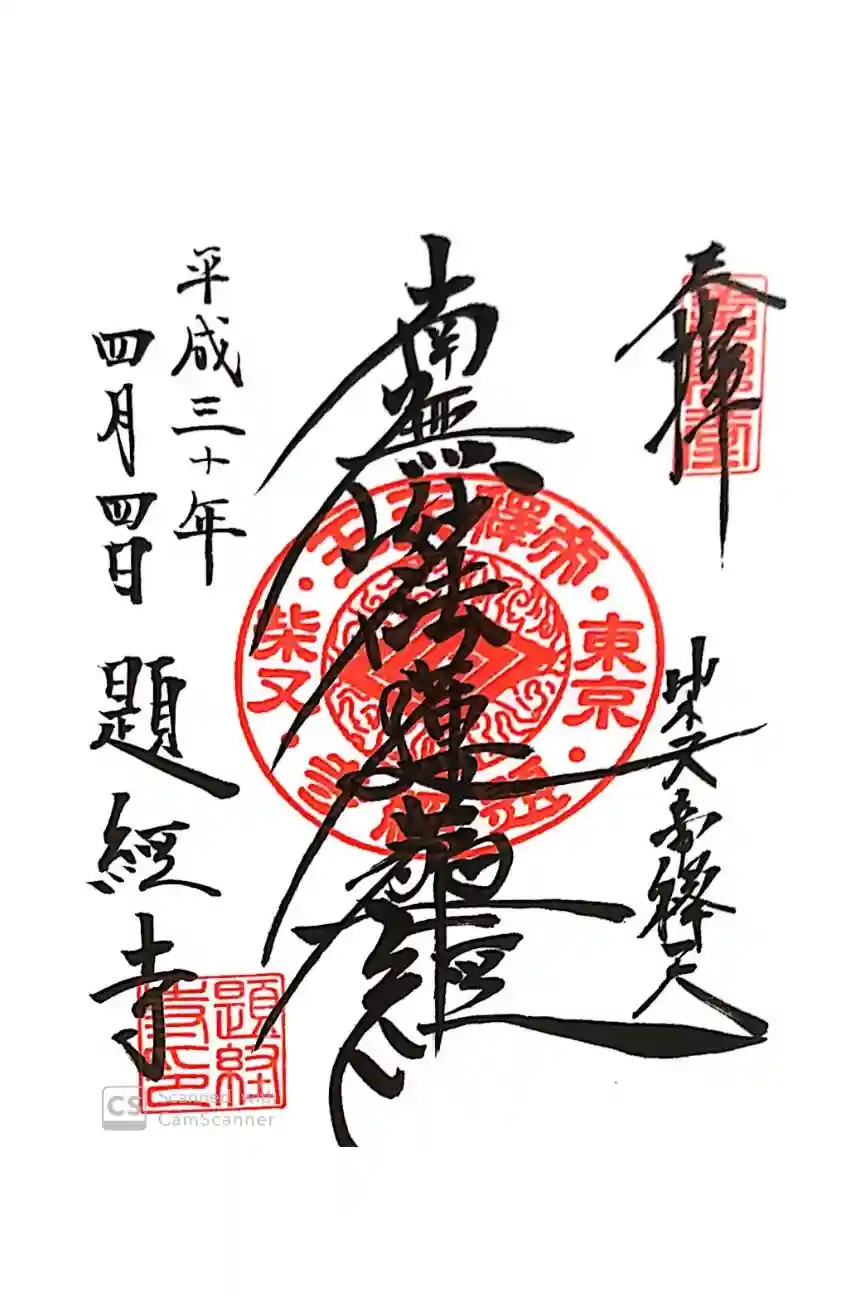 奉拝
柴又帝釋天
南無妙法蓮華経
平成三十年
四月四日 題経寺
帝釋天王
東京
柴又
題経寺
題経寺印
CS Scanned with
CamScanner